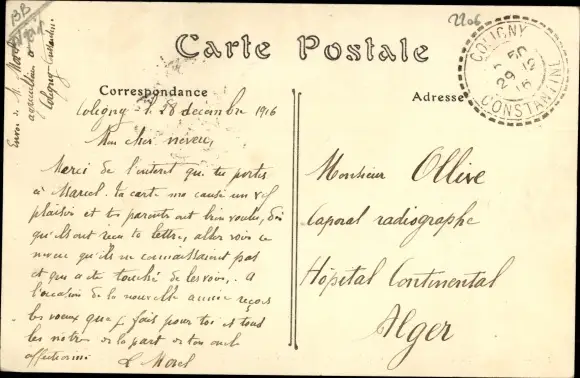 BB
2206
Envoi de M. Morel
agriculteur à
Coligny Constantine
Carte Postale
COLIGNY
29 12 16
CONSTANTINE
Correspondance
Adresse
Coligny le 28 décembre 1916
Mon cher neveu,
Merci de l'interet que tu portes
à Marcel. Ta carte me cause un vif
plaisir et tes parents ont bien voulu, dès
qu'ils ont reçu ta lettre, aller voir ce
neveu qu'ils ne connaissaient pas
et qui a été touché de les voir. A
l'occasion de la nouvelle année reçois
les voeux que je fais pour toi et tous
les nôtres de la part de ton oncle
affectionné
L Morel
Monsieur Ollive
Caporal radiographe
Hôpital Continental
Alger